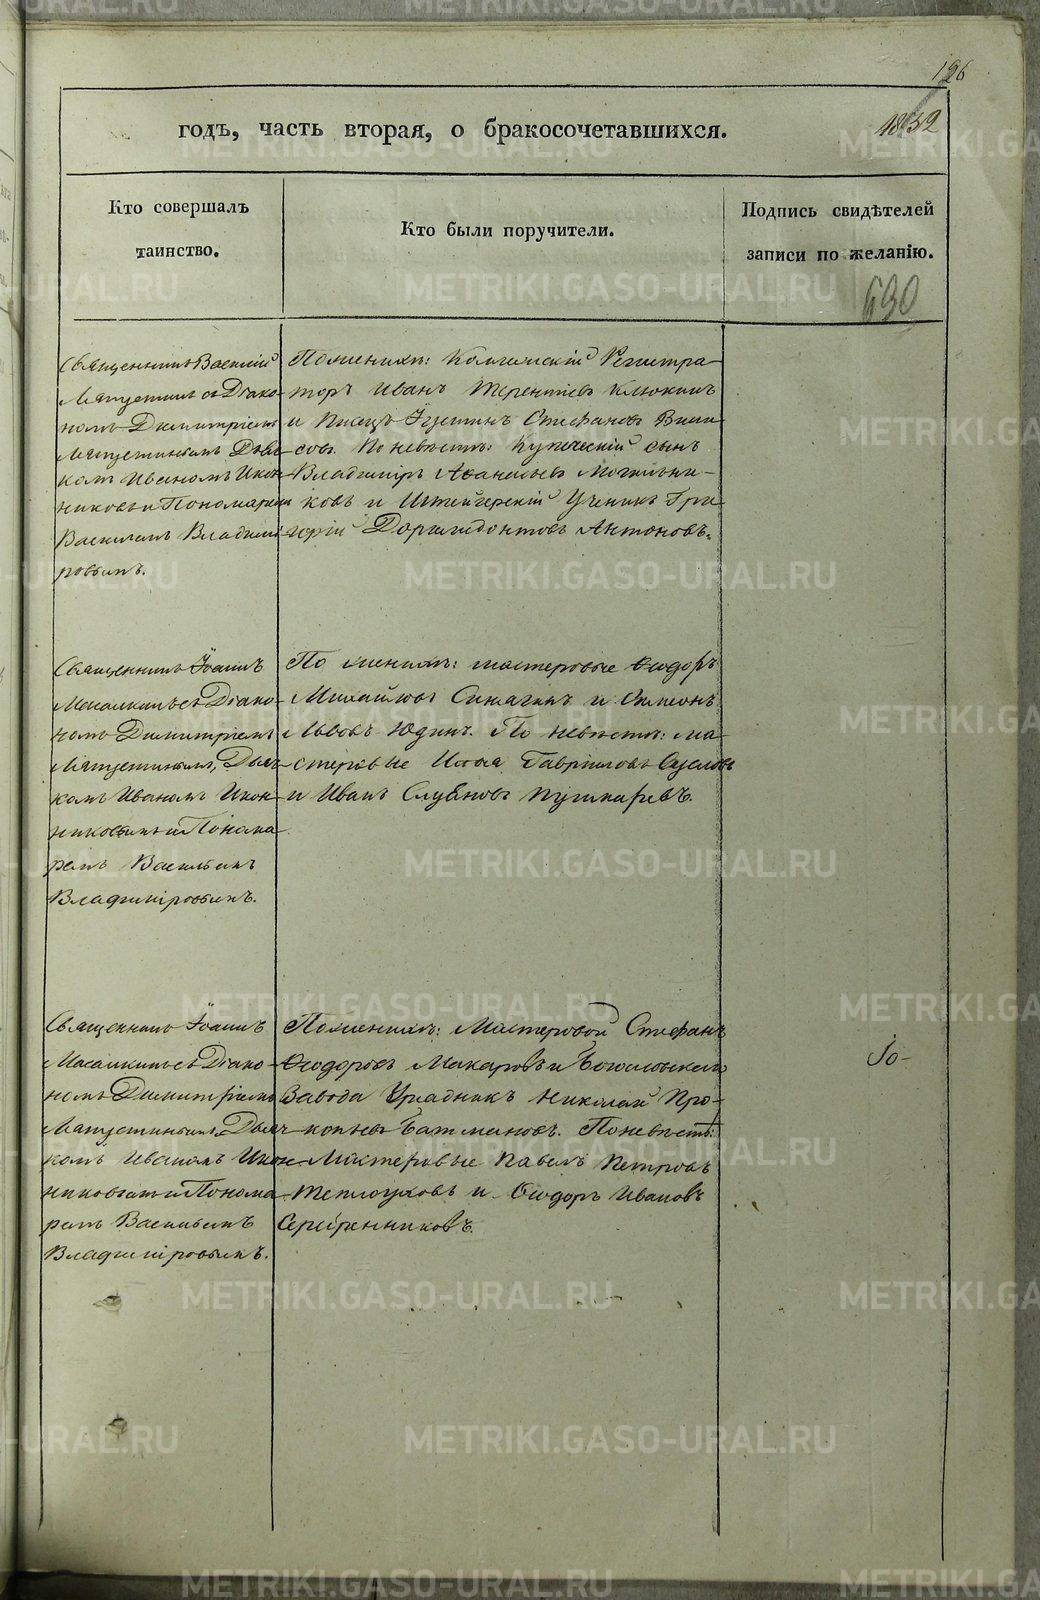 126
годъ, часть вторая, о бракосочетавшихся.
1852
Кто совершалъ
таинство.
Кто были поручители.
Подпись свидѣтелей
записи по желанію.
690
Священникъ Василій
съ Діако-
номъ Димитріемъ
Дья-
комъ Иваномъ Икон-
никовымъ и Пономаремъ
Василіемъ Владими-
ровымъ.
По женихѣ: Коллежскій Регистра-
торъ Иванъ Терентьевъ Клюкинъ
и Писецъ Іустинъ Стефановъ
По невѣстѣ: Купеческій сынъ
Владиміръ Аѳанасьевъ Могильни-
ковъ и Штейгерскій Ученикъ Гри-
горій Доримедонтовъ Антоновъ.
Священникъ Іоаннъ
съ Діако-
номъ Димитріемъ
Дья-
комъ Иваномъ Икон-
никовымъ и Понома
ремъ Васильемъ
Владиміровымъ.
По женихѣ: мастеровые Ѳеодоръ
Михайловъ Синагинъ и Симеонъ
Львовъ Юдинъ. По невѣстѣ: ма-
стеровые Гавріиловъ Сусловъ
и Иванъ Пушкаревъ.
Священникъ Іоаннъ
съ Діако-
номъ Димитріемъ
Дьяч
комъ Иваномъ Икон-
никовымъ и Понома
ремъ Васильемъ
Владиміровымъ.
По женихѣ: Мастеровой Стефанъ
Ѳеодоровъ Макаровъ и Богословскаго
Завода Урядникъ Николай Про-
копьевъ Батмановъ. По невѣстѣ:
Мастеровые Павелъ Петровъ
Теплоуховъ и Ѳеодоръ Ивановъ
Серебренниковъ.
Jо-
METRIKI.GASO-URAL.RU